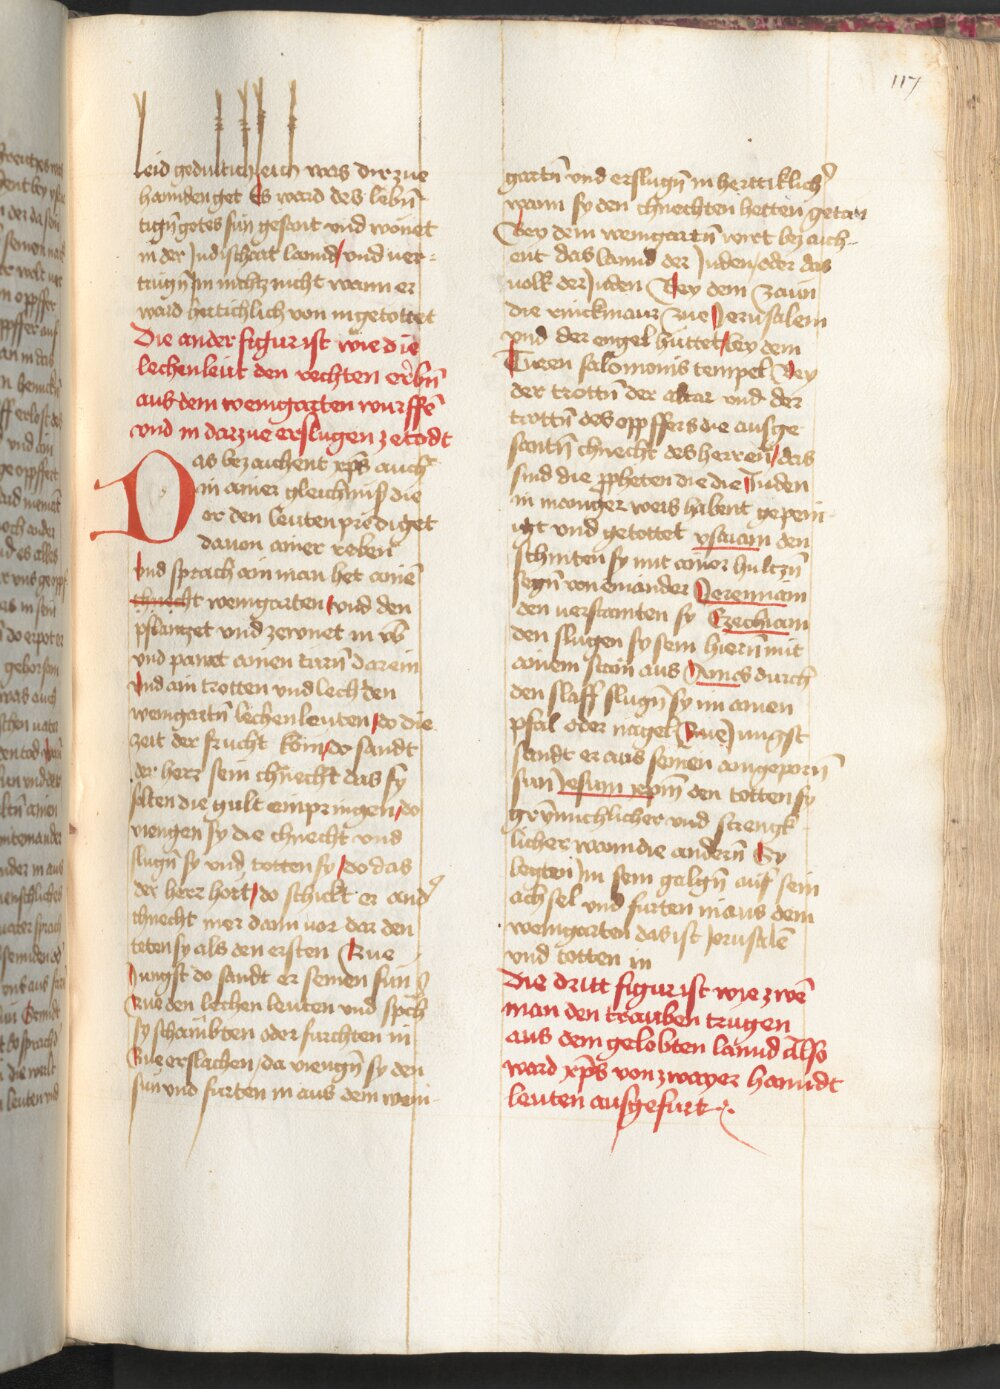 117
Leid gedultichleich was dir zue
hannden get Es ward des lebn̄
tign̄ gotes sun gesant und wonet
in der Judischait lannd und ver-
trugn̄ Im nichtz nicht wann er
ward hertichlich von in getottet
Die ander figur ist wie die
lechenleut den rechten erbn̄
aus dem weingarten wurffē
und in darzue erslugen ze todt
Das bezaichent xp̄s auch
in ainer gleichnuss die
er den leuten prediget
davon ainer reben
Und sprach ain man het ainē
chnecht weingarten und den
pflantzet und zewnet in vb̄
und pawt ainen turn̄ darein
und ain trotten und lech den
weingartn̄ lechenleuten do die
zeit der frucht kom do sandt
der herr sein chnecht das sy
solten die gult einpringen do
viengen sy die chnecht und
slugn̄ sy und totten sy do das
der herr hort do schickt er and
chnecht mer dann vor dar den
teten sy als den ersten Zue
Jungst do sandt er seinen sun
zue den lechen leuten und sprch
sy schambten oder furchten in
Zue erslachen da viengn̄ sy den
sun und furten in aus dem wein-
gartn̄ und erslugn̄ in herttiklich
wann sy den chnechten hetten getan
Bey dem weingartn̄ wirt bezaich-
ent das lannd der Juden oder das
volk der Juden Bey dem Zaun
die rinckmaur Zue Jerusalem
und der engel huttet bey dem
Turen salomonis tempel Bey
der trottn̄ der altar und der
trottn̄ des oppffers die ausge
santn̄ chnecht des herren das
sind die ppheten die die Juden
in maniger weis habent gepein
igt und getottet ysaiam den
schniten sy mit ainer hultzn̄
segn̄ von einander Jeremiam
den verstainten sy Ezechiam
den slugen sy sein hiern̄ mit
ainem stain aus Amos durch
den slaff slugn̄ sy im ainen
pfal oder nagel Zue Jungst
sandt er aus seinen aingeporn̄
sun Jesum xp̄m den totten sy
grymichlicher und strengk
licher wann die andern̄ Sy
legten Im sein galgn̄ auf sein
achsel und furten in aus dem
weingarten das ist Jerusalē
und totten in
Die dritt figur ist wie zwē
man den trauben trugen
aus dem gelobten lannd Also
ward xp̄s von zwayer hanndt
leuten ausgefurt